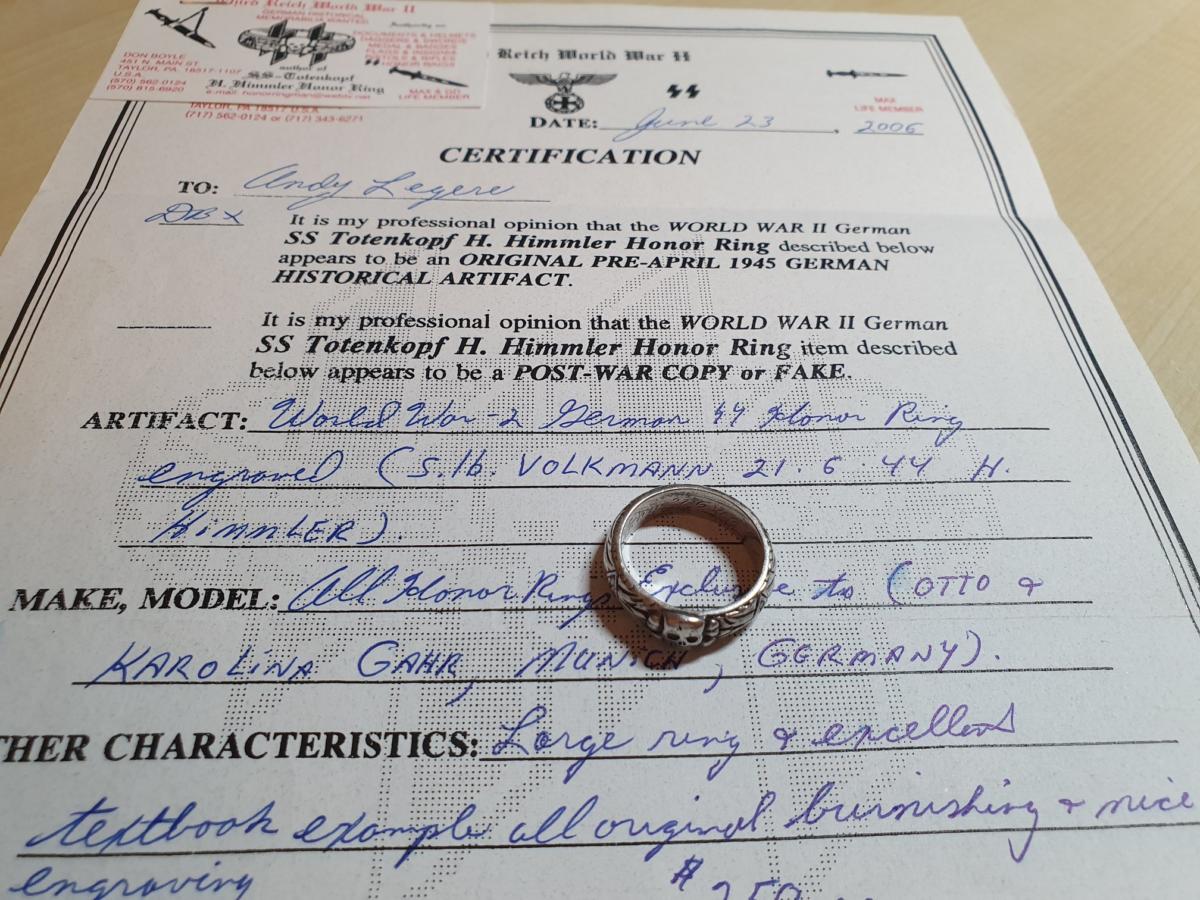 Third Reich World War II
GERMAN HISTORICAL
MEMORABILIA WANTED
DOCUMENTS & HELMETS
DAGGERS & SWORDS
MEDAL & BADGES
FLAGS & INSIGNIA
PISTOLS & RIFLES
HONOR RINGS
DON BOYLE
451 N. MAIN ST
TAYLOR, PA. 18517-1107
U.S.A.
(570) 562-0124
(570) 815-6920
author of
SS-Totenkopf
H. Himmler Honor Ring
e-mail: honorringman@webtv.net
MAX & GD
LIFE MEMBER
TAYLOR, PA 18517 U.S.A.
(717) 562-0124 or (717) 343-6271
Reich World War II
MAX
LIFE MEMBER
DATE: June 23, 2006
CERTIFICATION
TO: Andy Legere
DB X
It is my professional opinion that the WORLD WAR II German
SS Totenkopf H. Himmler Honor Ring described below
appears to be an ORIGINAL PRE-APRIL 1945 GERMAN
HISTORICAL ARTIFACT.
It is my professional opinion that the WORLD WAR II German
SS Totenkopf H. Himmler Honor Ring item described
below appears to be a POST-WAR COPY or FAKE.
ARTIFACT: World War-2 German SS Honor Ring
engraved (S.lb. VOLKMANN 21.6.44 H.
HiMMLER).
MAKE, MODEL: All Honor Rings Exclusive to (OTTO &
KAROLiNA GAHR, MUNiCH, GERMANY).
THER CHARACTERISTICS: Large ring & excellent
textbook example all original burnishing & nice
engraving